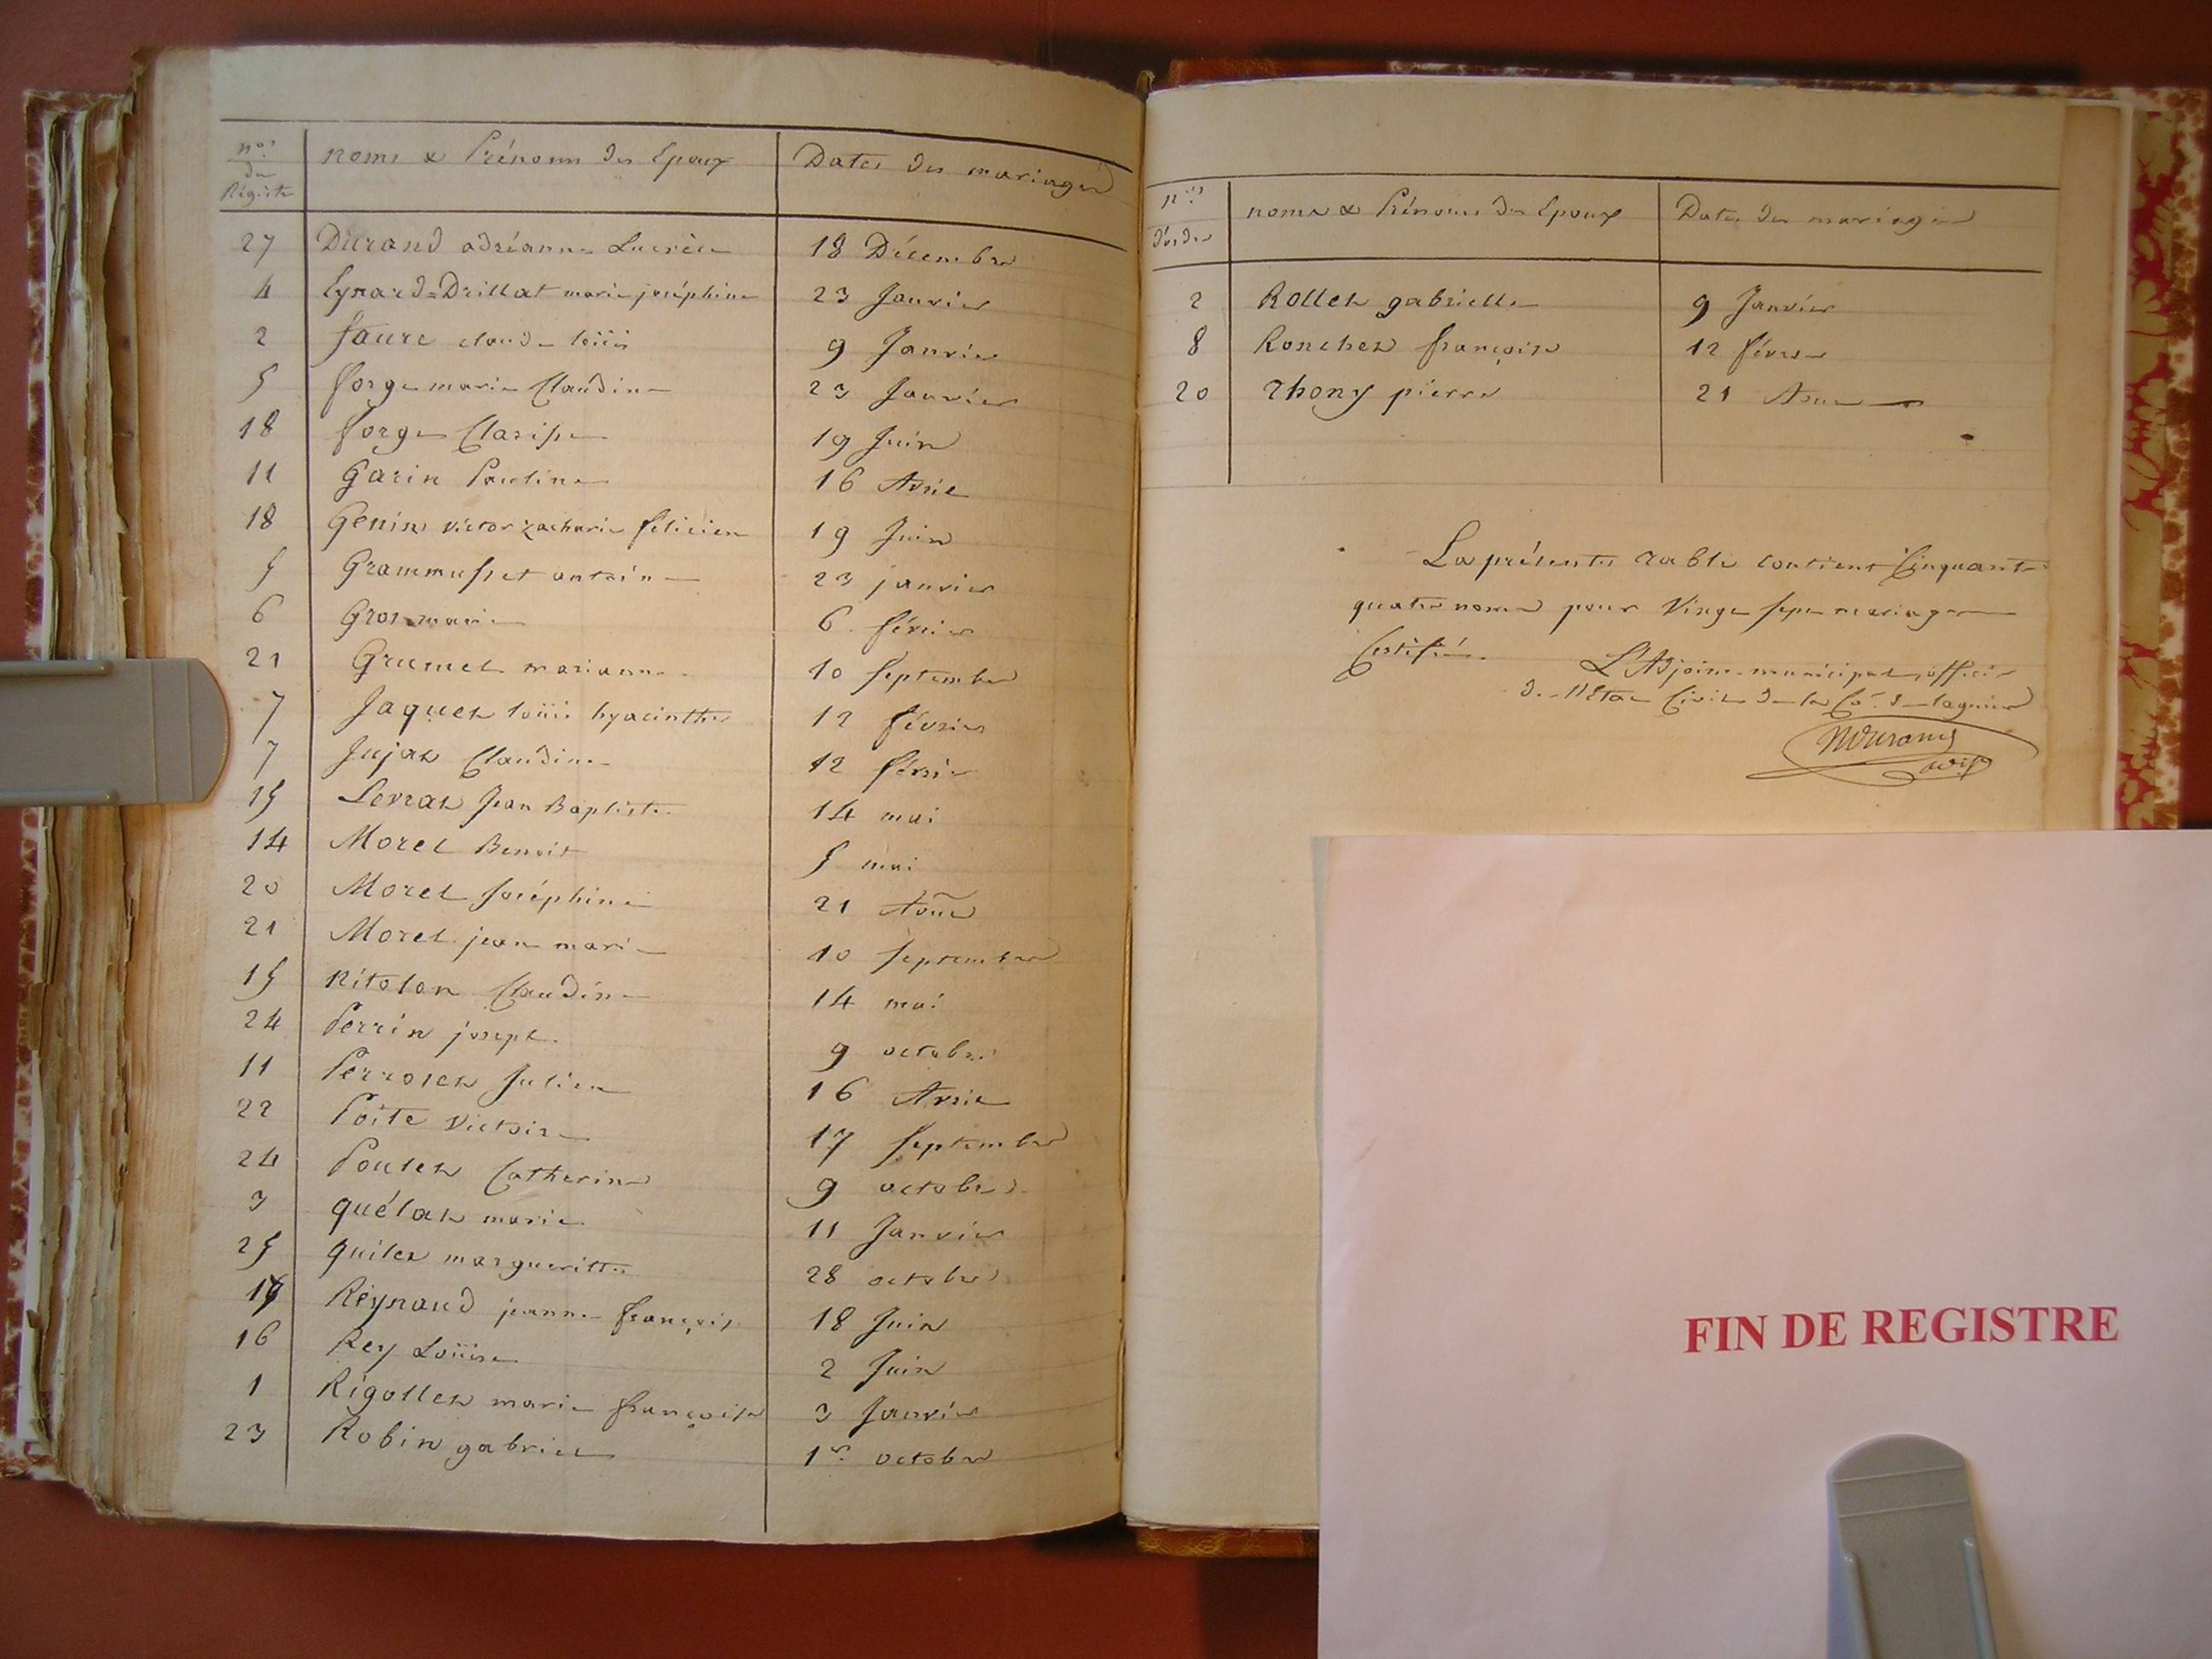 nos du Régistre | noms & Prénoms des Epoux | Dates des mariages
27 Durand adréanne Lucrèce 18 Décembre
4 Eynard=Drillat marie joséphine 23 Janvier
2 faure claude loüis 9 Janvier
5 forge marie Claudine 23 Janvier
18 forge Clarisse 19 Juin
11 Garin Pauline 16 Avril
18 Genin victor zacharie felicien 19 Juin
5 Grammusset antoine 23 janvier
6 Gros marie 6 février
21 Grumet marianne 10 septembre
7 Jaquet loüis hyacinthe 12 février
7 Jujat Claudine 12 février
15 Levrat Jean Baptiste 14 mai
14 Morel Benoit 5 mai
20 Morel Joséphine 21 Aout
21 Morel jean marie 10 septembre
15 Nitolon Claudine 14 mai
24 Perrin joseph 9 octobre
11 Perroset Julien 16 Avril
22 Poite Victoire 17 septembre
24 Poulet Catherine 9 octobre
3 quélat marie 11 Janvier
25 quilet margueritte 28 octobre
19 Reynaud jeanne françoise 18 Juin
16 Rey Loüise 2 Juin
1 Rigollet marie françoise 3 Janvier
23 Robin gabriel 1er octobre
nos d'ordre | noms & Prénoms des Epoux | Dates des mariages
2 Rollet gabrielle 9 Janvier
8 Ronchet françoise 12 février
20 Thony pierre 21 Aout
La présente table contient Cinquante
quatre noms pour Vingt sept mariages
Certifié
L'Adjoint municipal, officier
de l'Etat Civil de la Cne de lagnieu
Durand
FIN DE REGISTRE